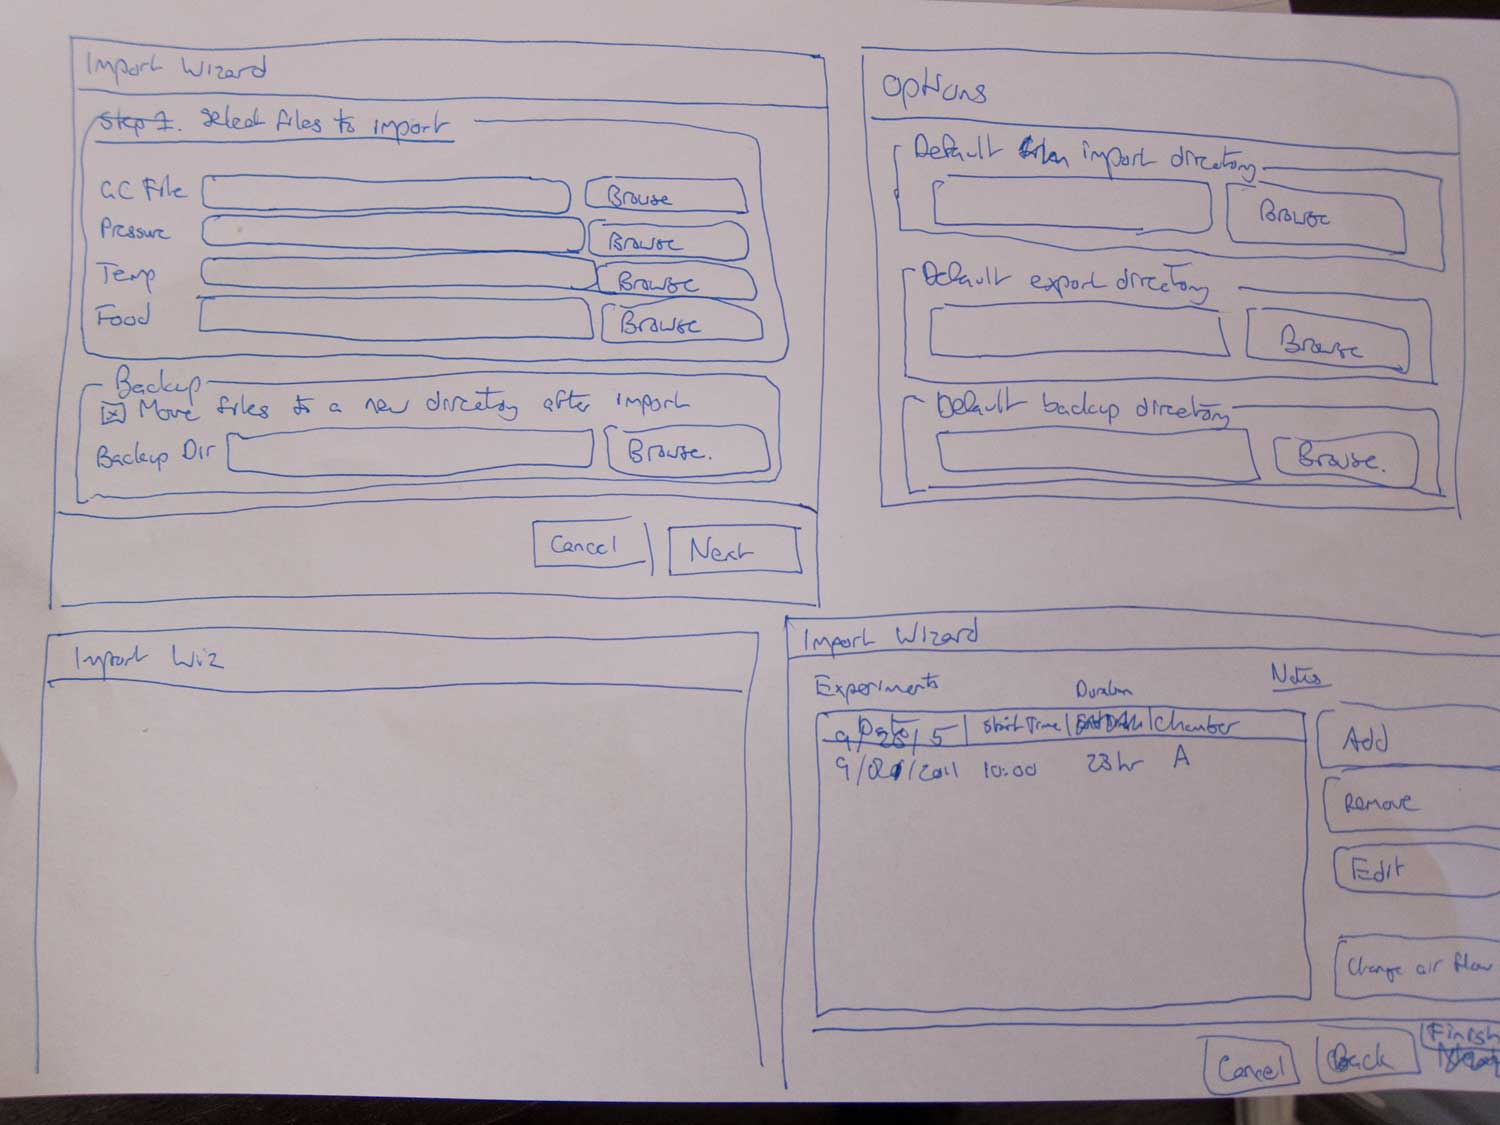 Import Wizard
Step 1. Select files to import
GC File Browse
Pressure Browse
Temp Browse
Food Browse
Backup
Move files to a new directory after import
Backup Dir Browse.
Cancel Next
Options
Default import directory
Browse
Default export directory
Browse
Default backup directory
Browse.
Import Wiz
Import Wizard
Experiments Notes
Duration
Date Start Time Chamber
9/ 5
9/02/2011 10:00 23hr A
Add
Remove
Edit
Change air flow
Cancel Back Finish